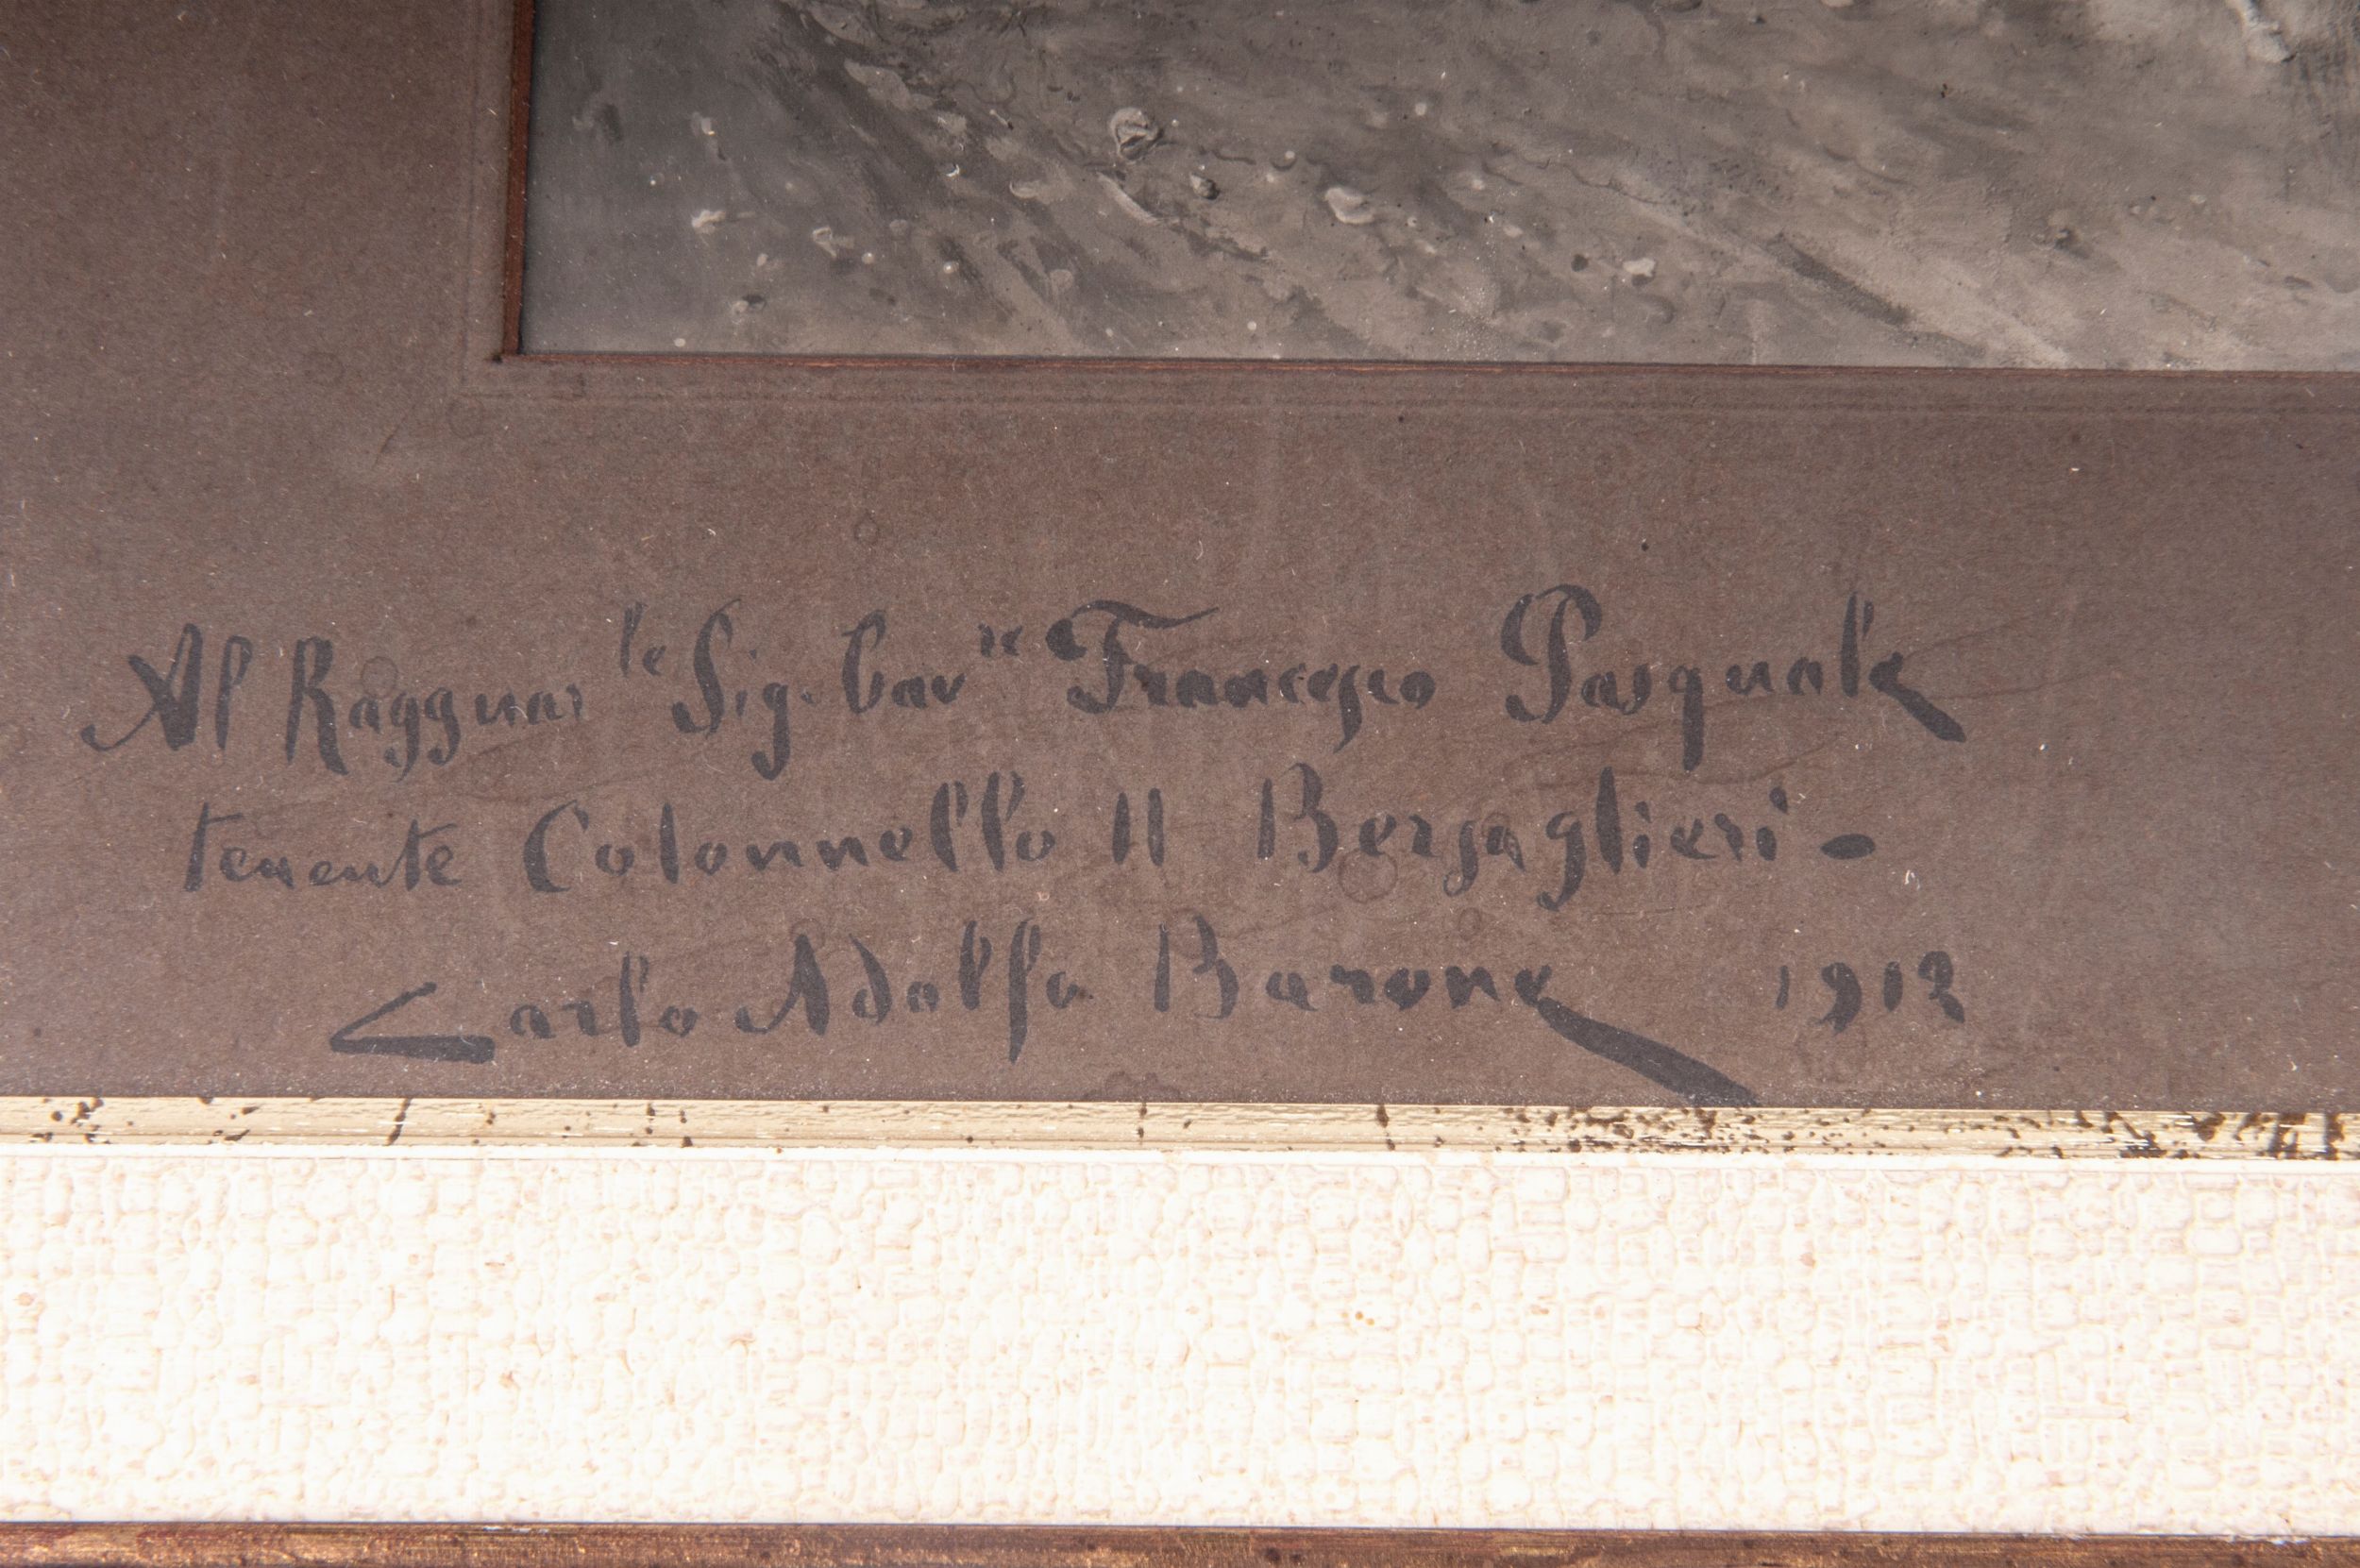 Al Ragguar.le Sig. Cav.re Francesco Pasquale
tenente Colonnello 11 Bersaglieri -
Carlo Adolfo Barone 1912